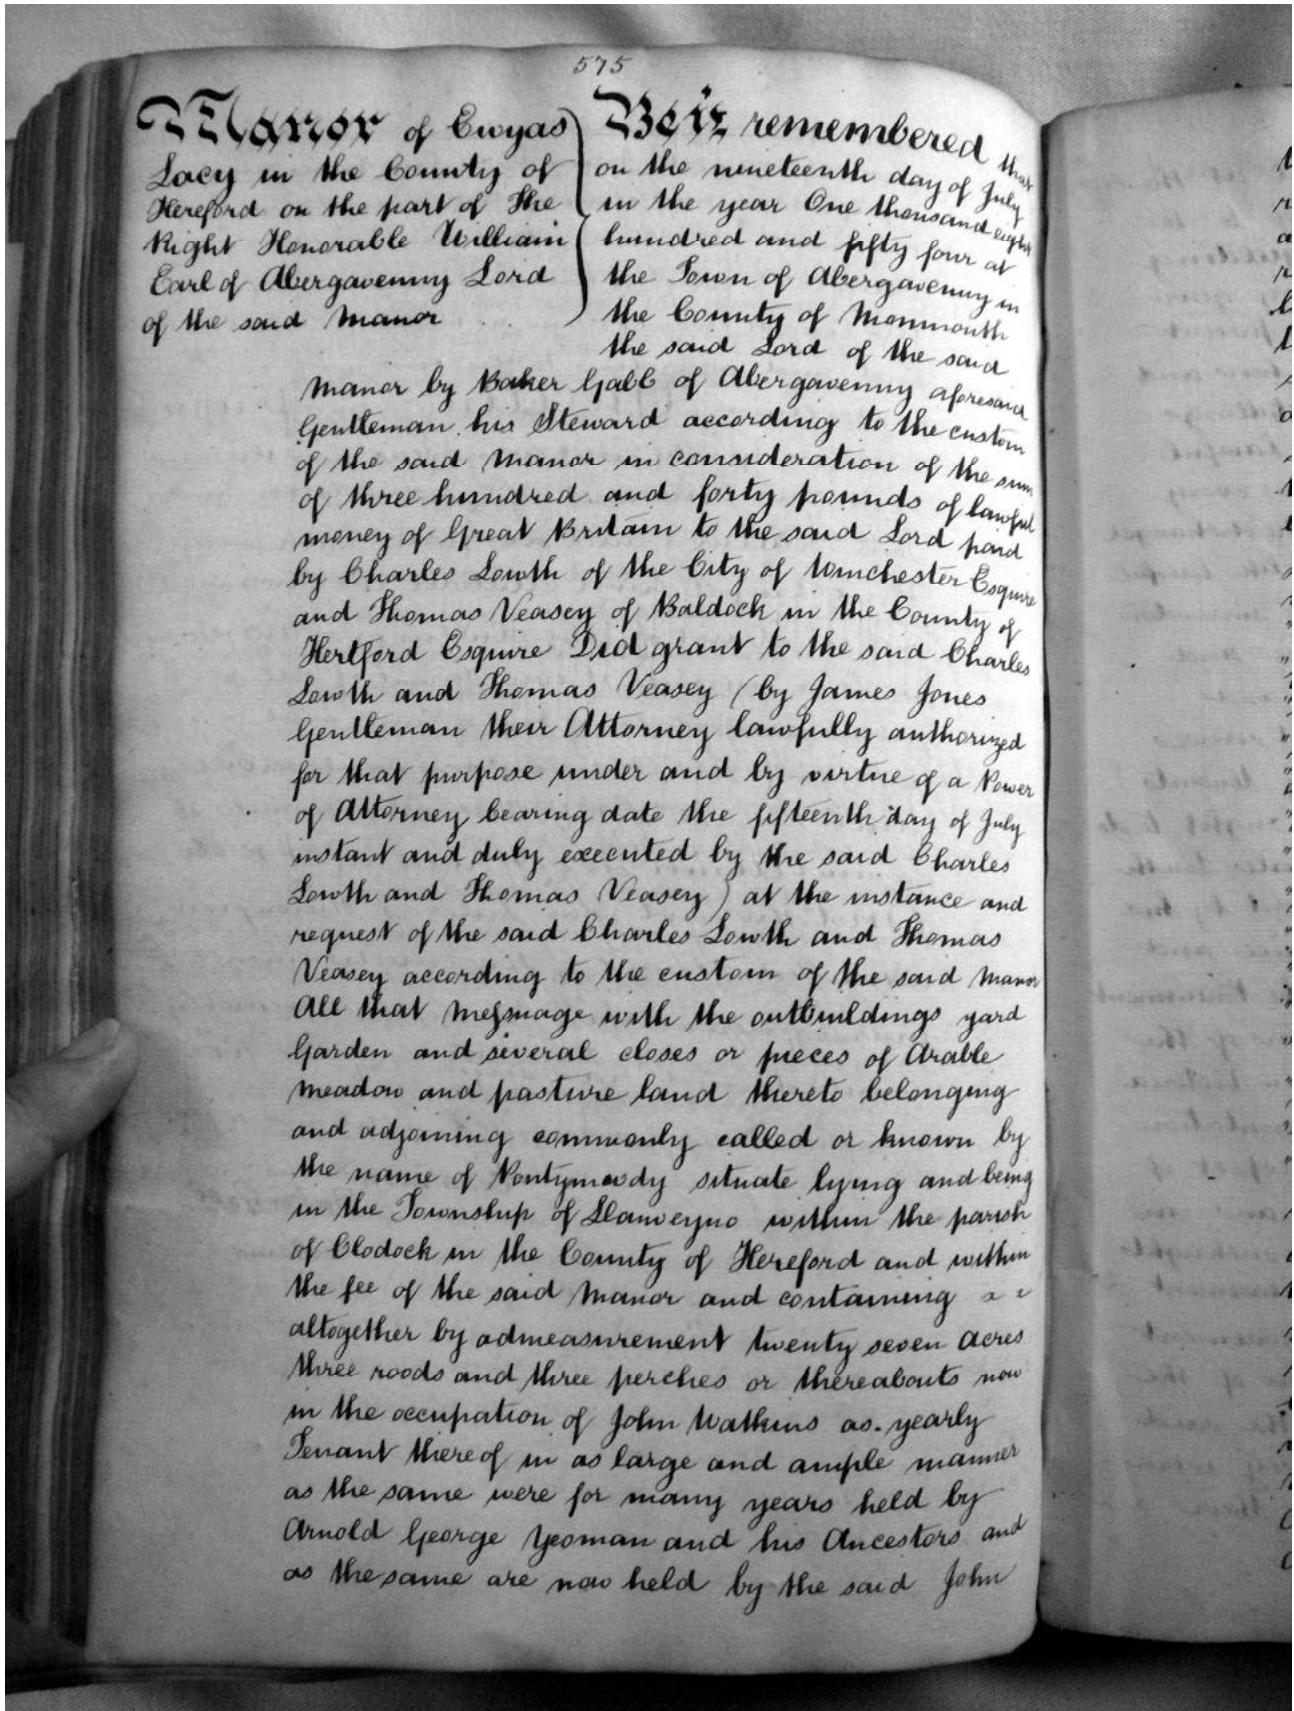 575
Manor of Ewyas
Lacy in the County of
Hereford on the part of The
Right Honorable William
Earl of Abergavenny Lord
of the said Manor
Be it remembered that
on the nineteenth day of July
in the year One thousand eight
hundred and fifty four at
the Town of Abergavenny in
the County of Monmouth
the said Lord of the said
Manor by Baker Gabb of Abergavenny aforesaid
Gentleman his Steward according to the custom
of the said Manor in consideration of the sum
of three hundred and forty pounds of lawful
money of Great Britain to the said Lord paid
by Charles Lowth of the City of Winchester Esquire
and Thomas Veasey of Baldock in the County of
Hertford Esquire Did grant to the said Charles
Lowth and Thomas Veasey (by James Jones
Gentleman their Attorney lawfully authorized
for that purpose under and by virtue of a Power
of Attorney bearing date the fifteenth day of July
instant and duly executed by the said Charles
Lowth and Thomas Veasey) at the instance and
request of the said Charles Lowth and Thomas
Veasey according to the custom of the said Manor
All that Messuage with the outbuildings yard
Garden and several closes or pieces of Arable
Meadow and pasture land thereto belonging
and adjoining commonly called or known by
the name of Pontymoody situate lying and being
in the Township of Llanveyno within the parish
of Clodock in the County of Hereford and within
the fee of the said Manor and containing
altogether by admeasurement twenty seven Acres
three roods and three perches or thereabouts now
in the occupation of John Watkins as yearly
Tenant thereof in as large and ample manner
as the same were for many years held by
Arnold George Yeoman and his Ancestors and
as the same are now held by the said John